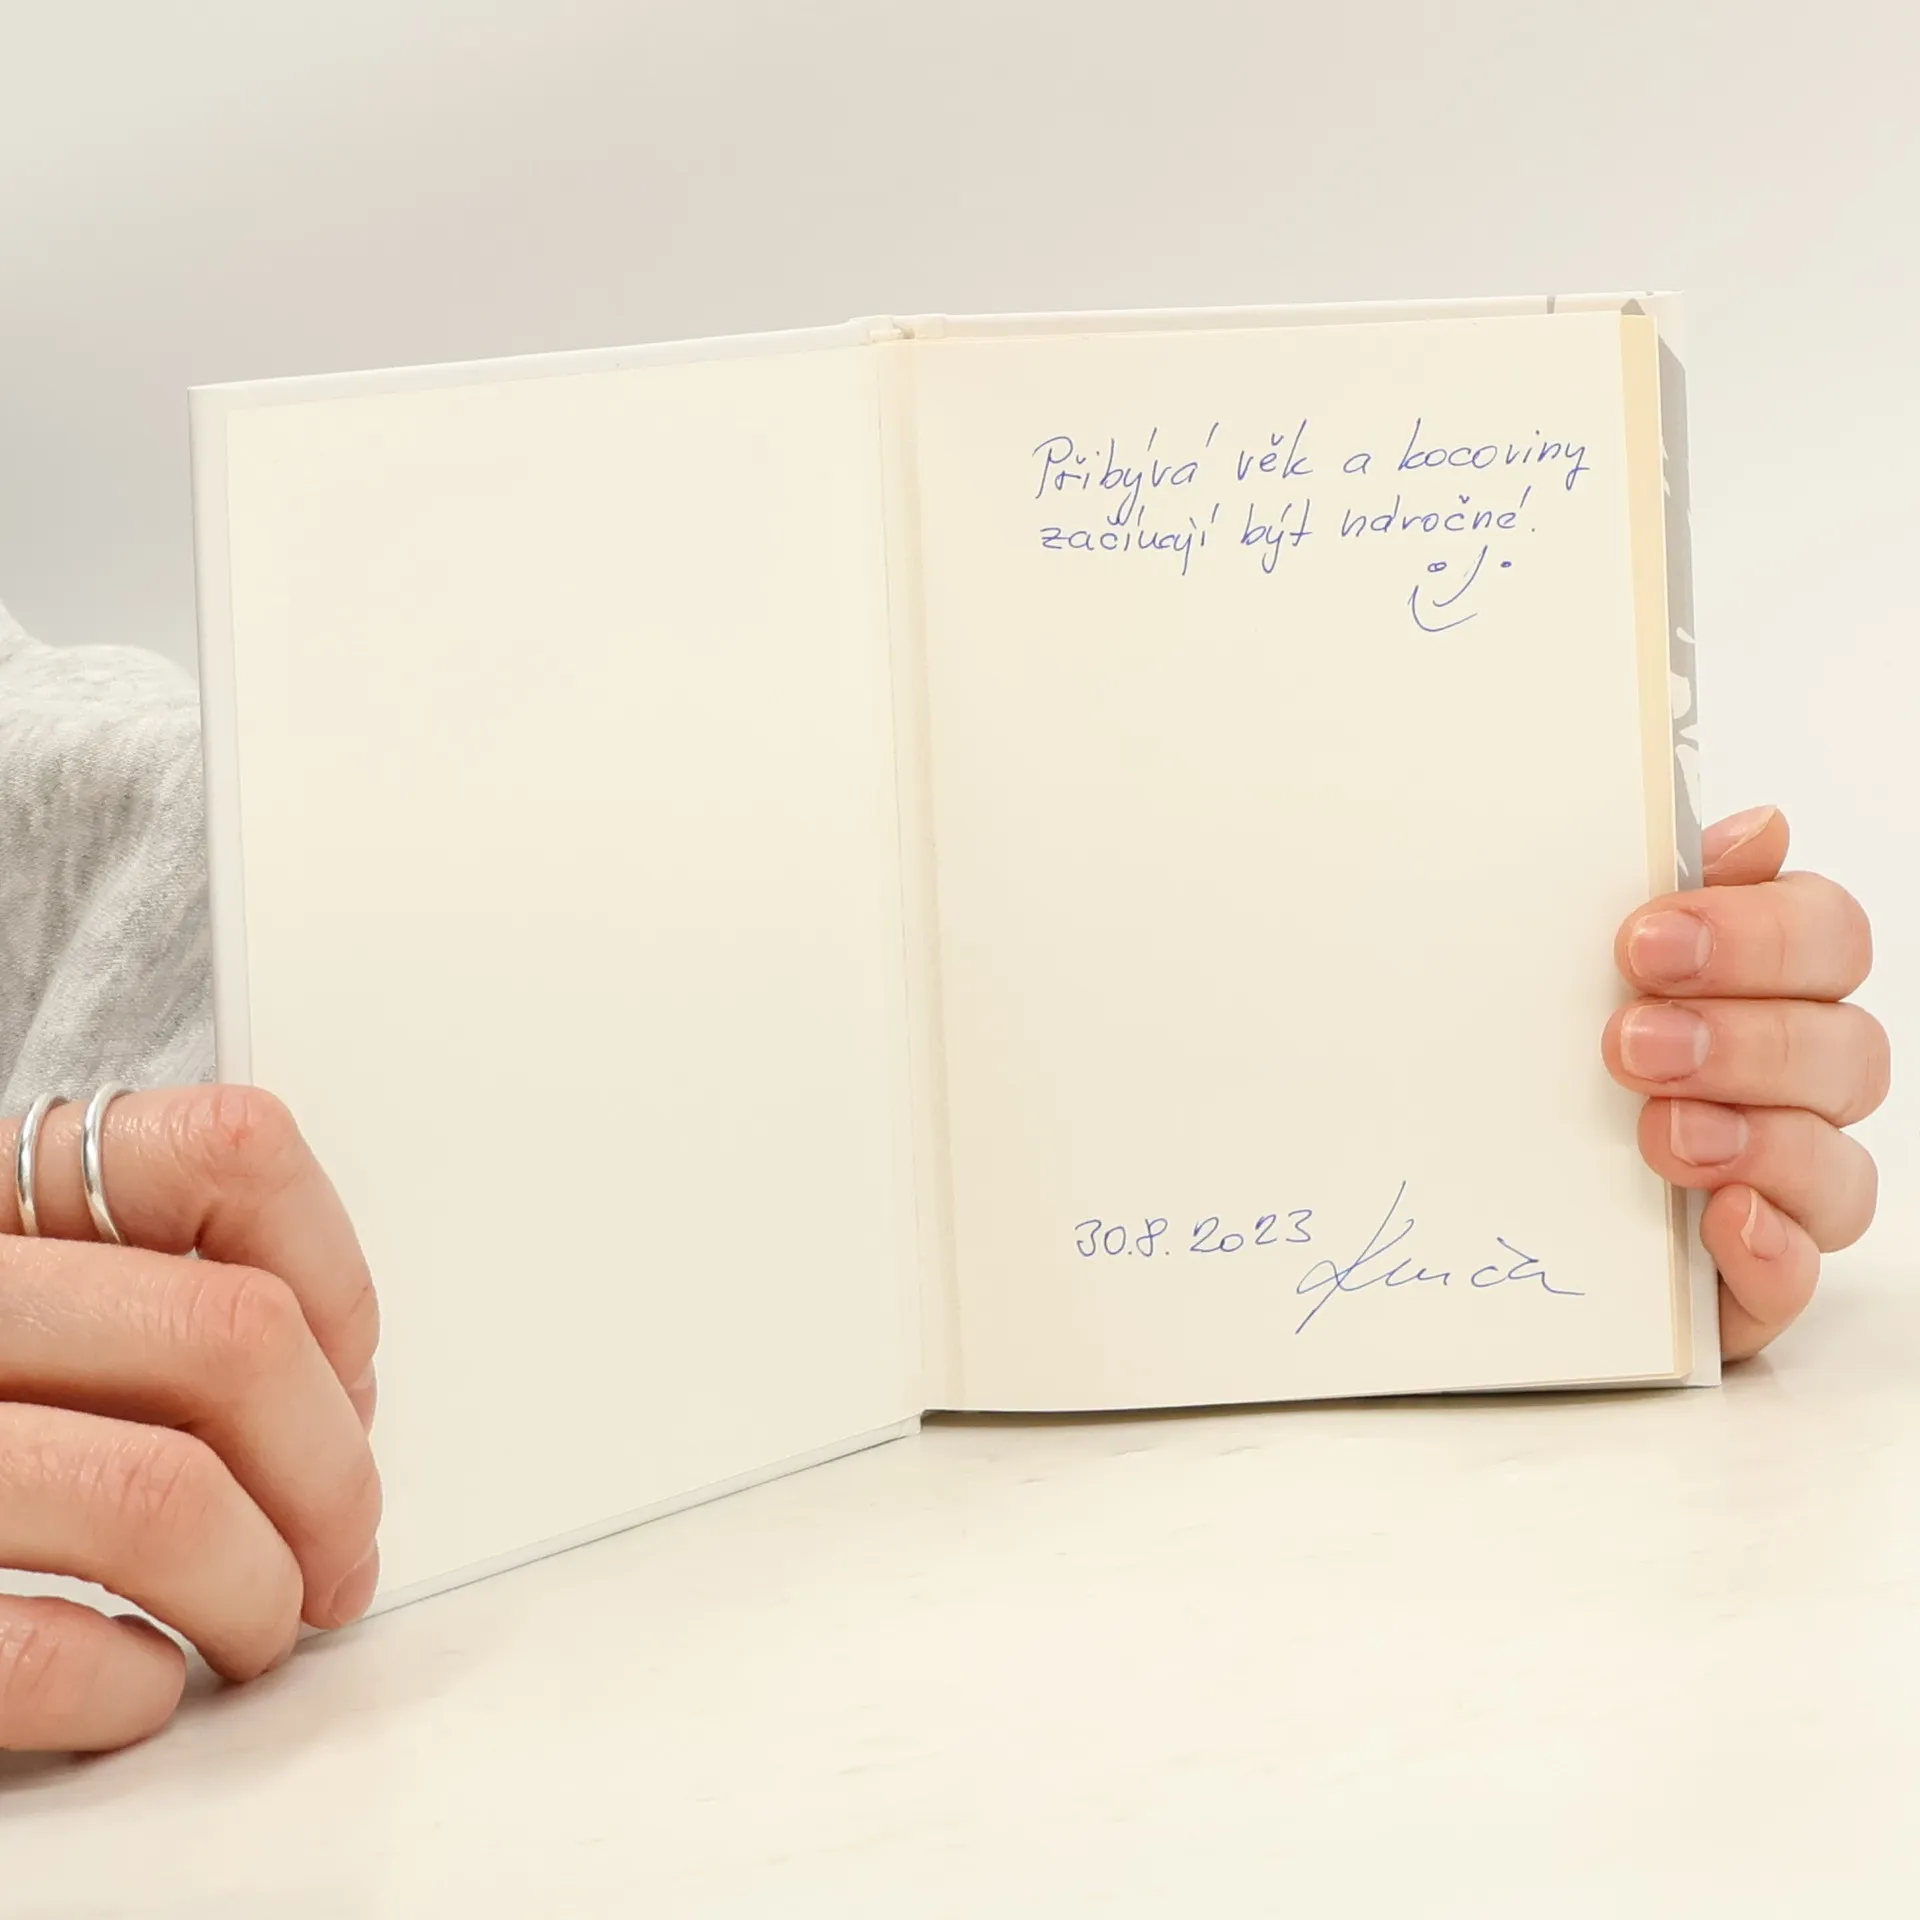 Přibývá věk a kocoviny
začínají být náročné.
30.8. 2023